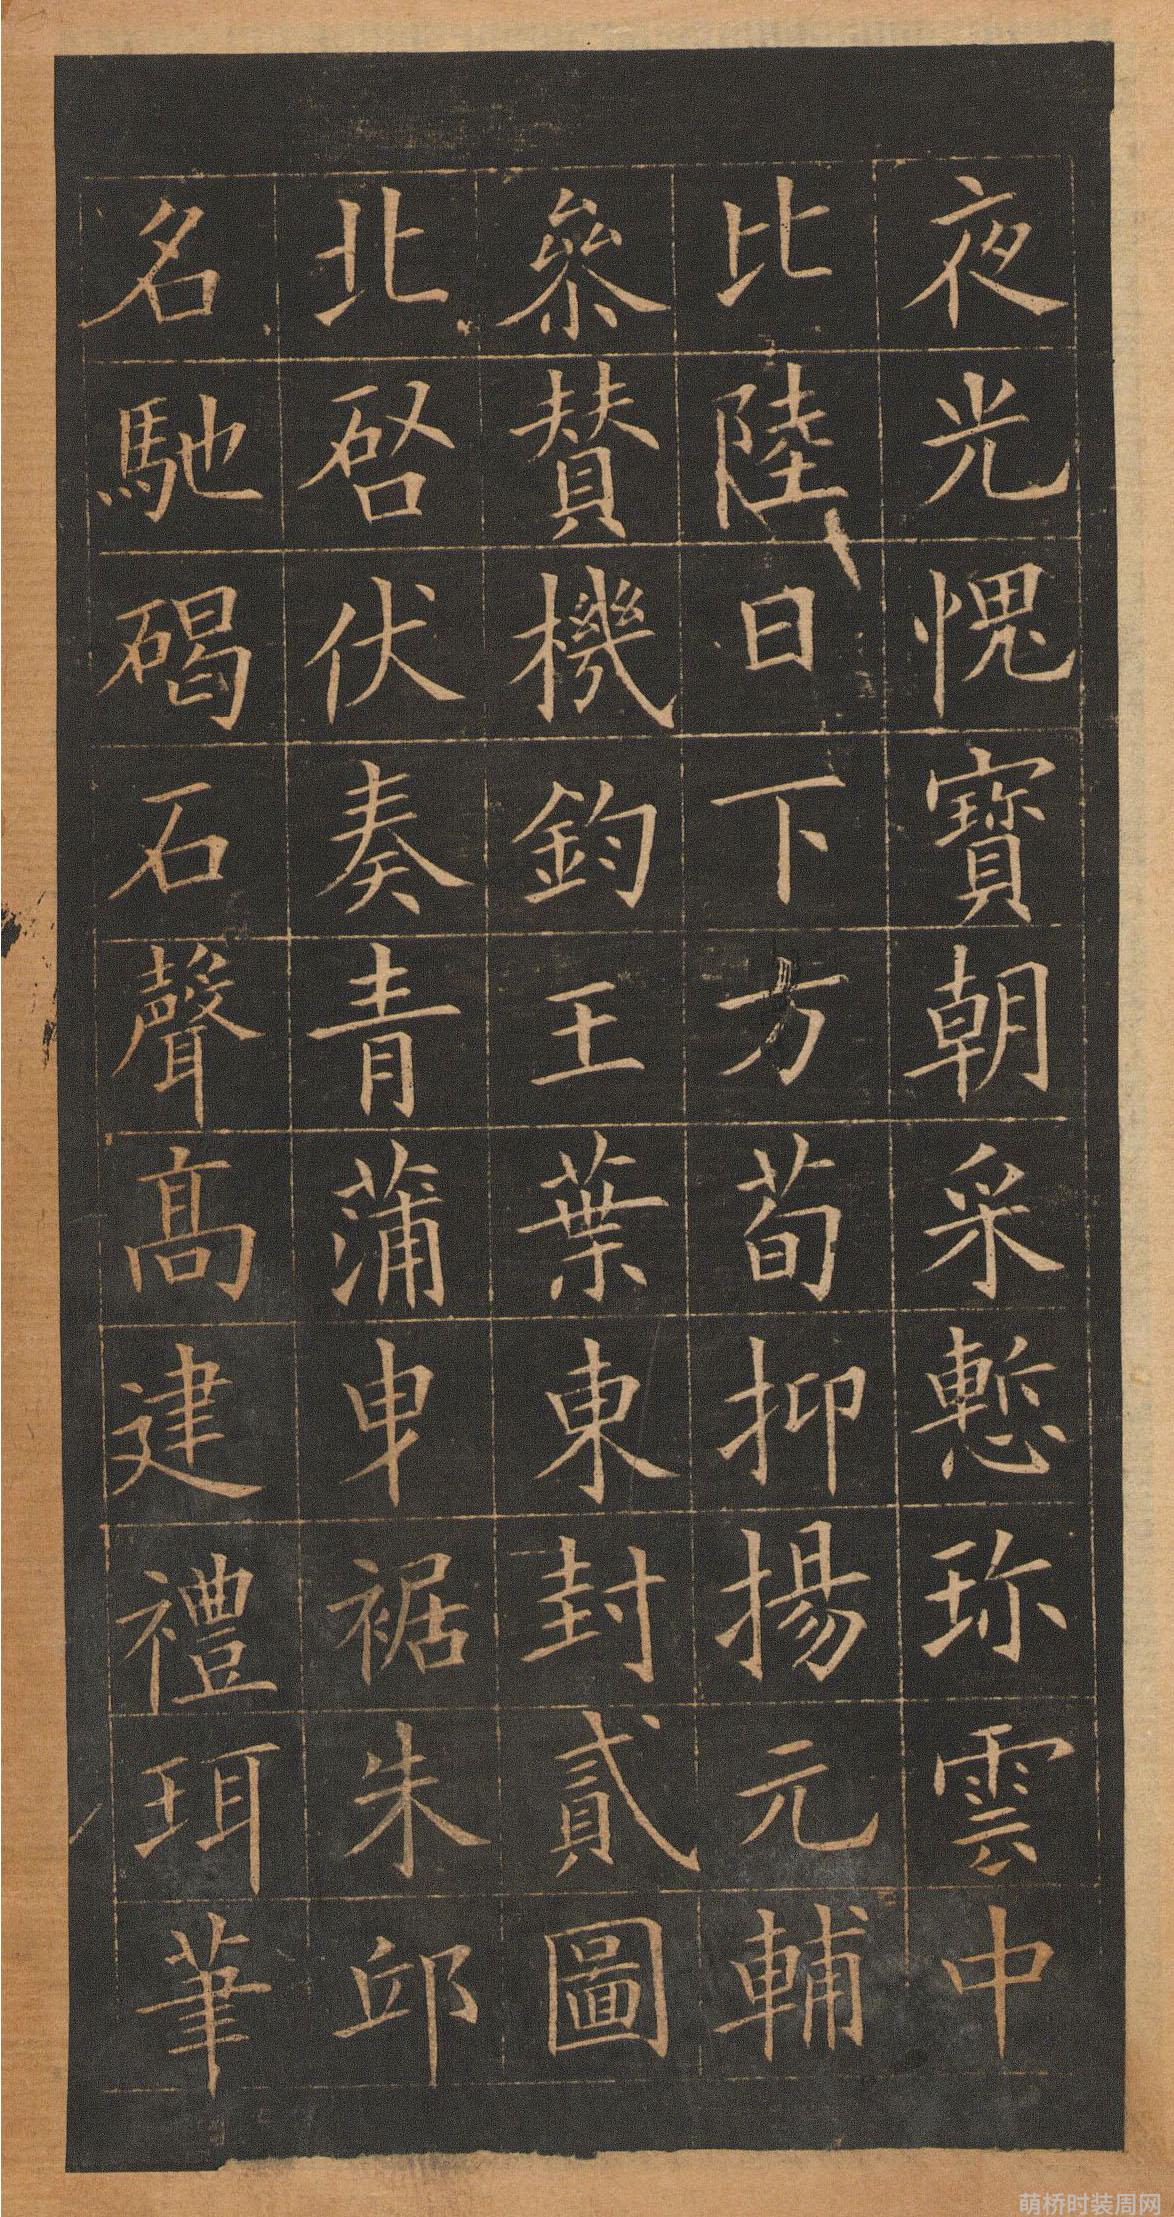 夜光愧寶朝采慙珎雲中
比陸日下方荀抑揚元輔
參賛機鈞王葉東封貳圖
北啓伏奏青蒲曳裾朱邸
名馳碣石聲髙建禮珥筆
萌桥时装周网